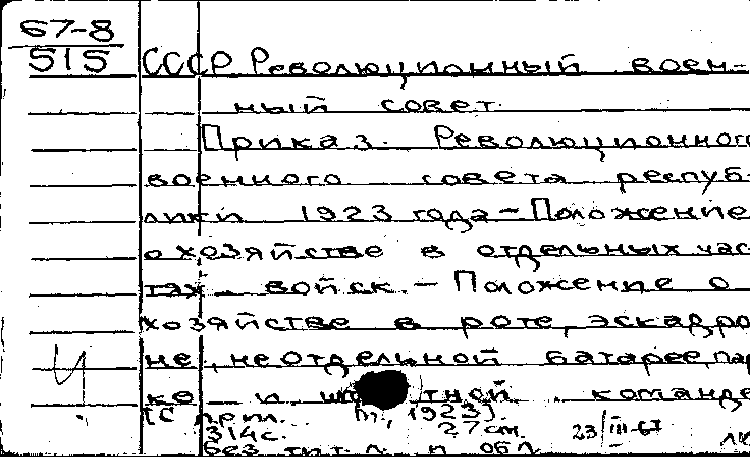 67-8
515 СССР Революционный воен-
ный совет.
Приказ. Революционного
военного совета респуб-
лики 1923 года - Положение
о хозяйстве в отдельных час
тях войск. - Положение о
хозяйстве в роте, эскадро
не, неотдельной батарее, пар
ке и тной команде
[С прил. М., 1923].
314с. 27 см. 23/III-67
без тит. л. и обл